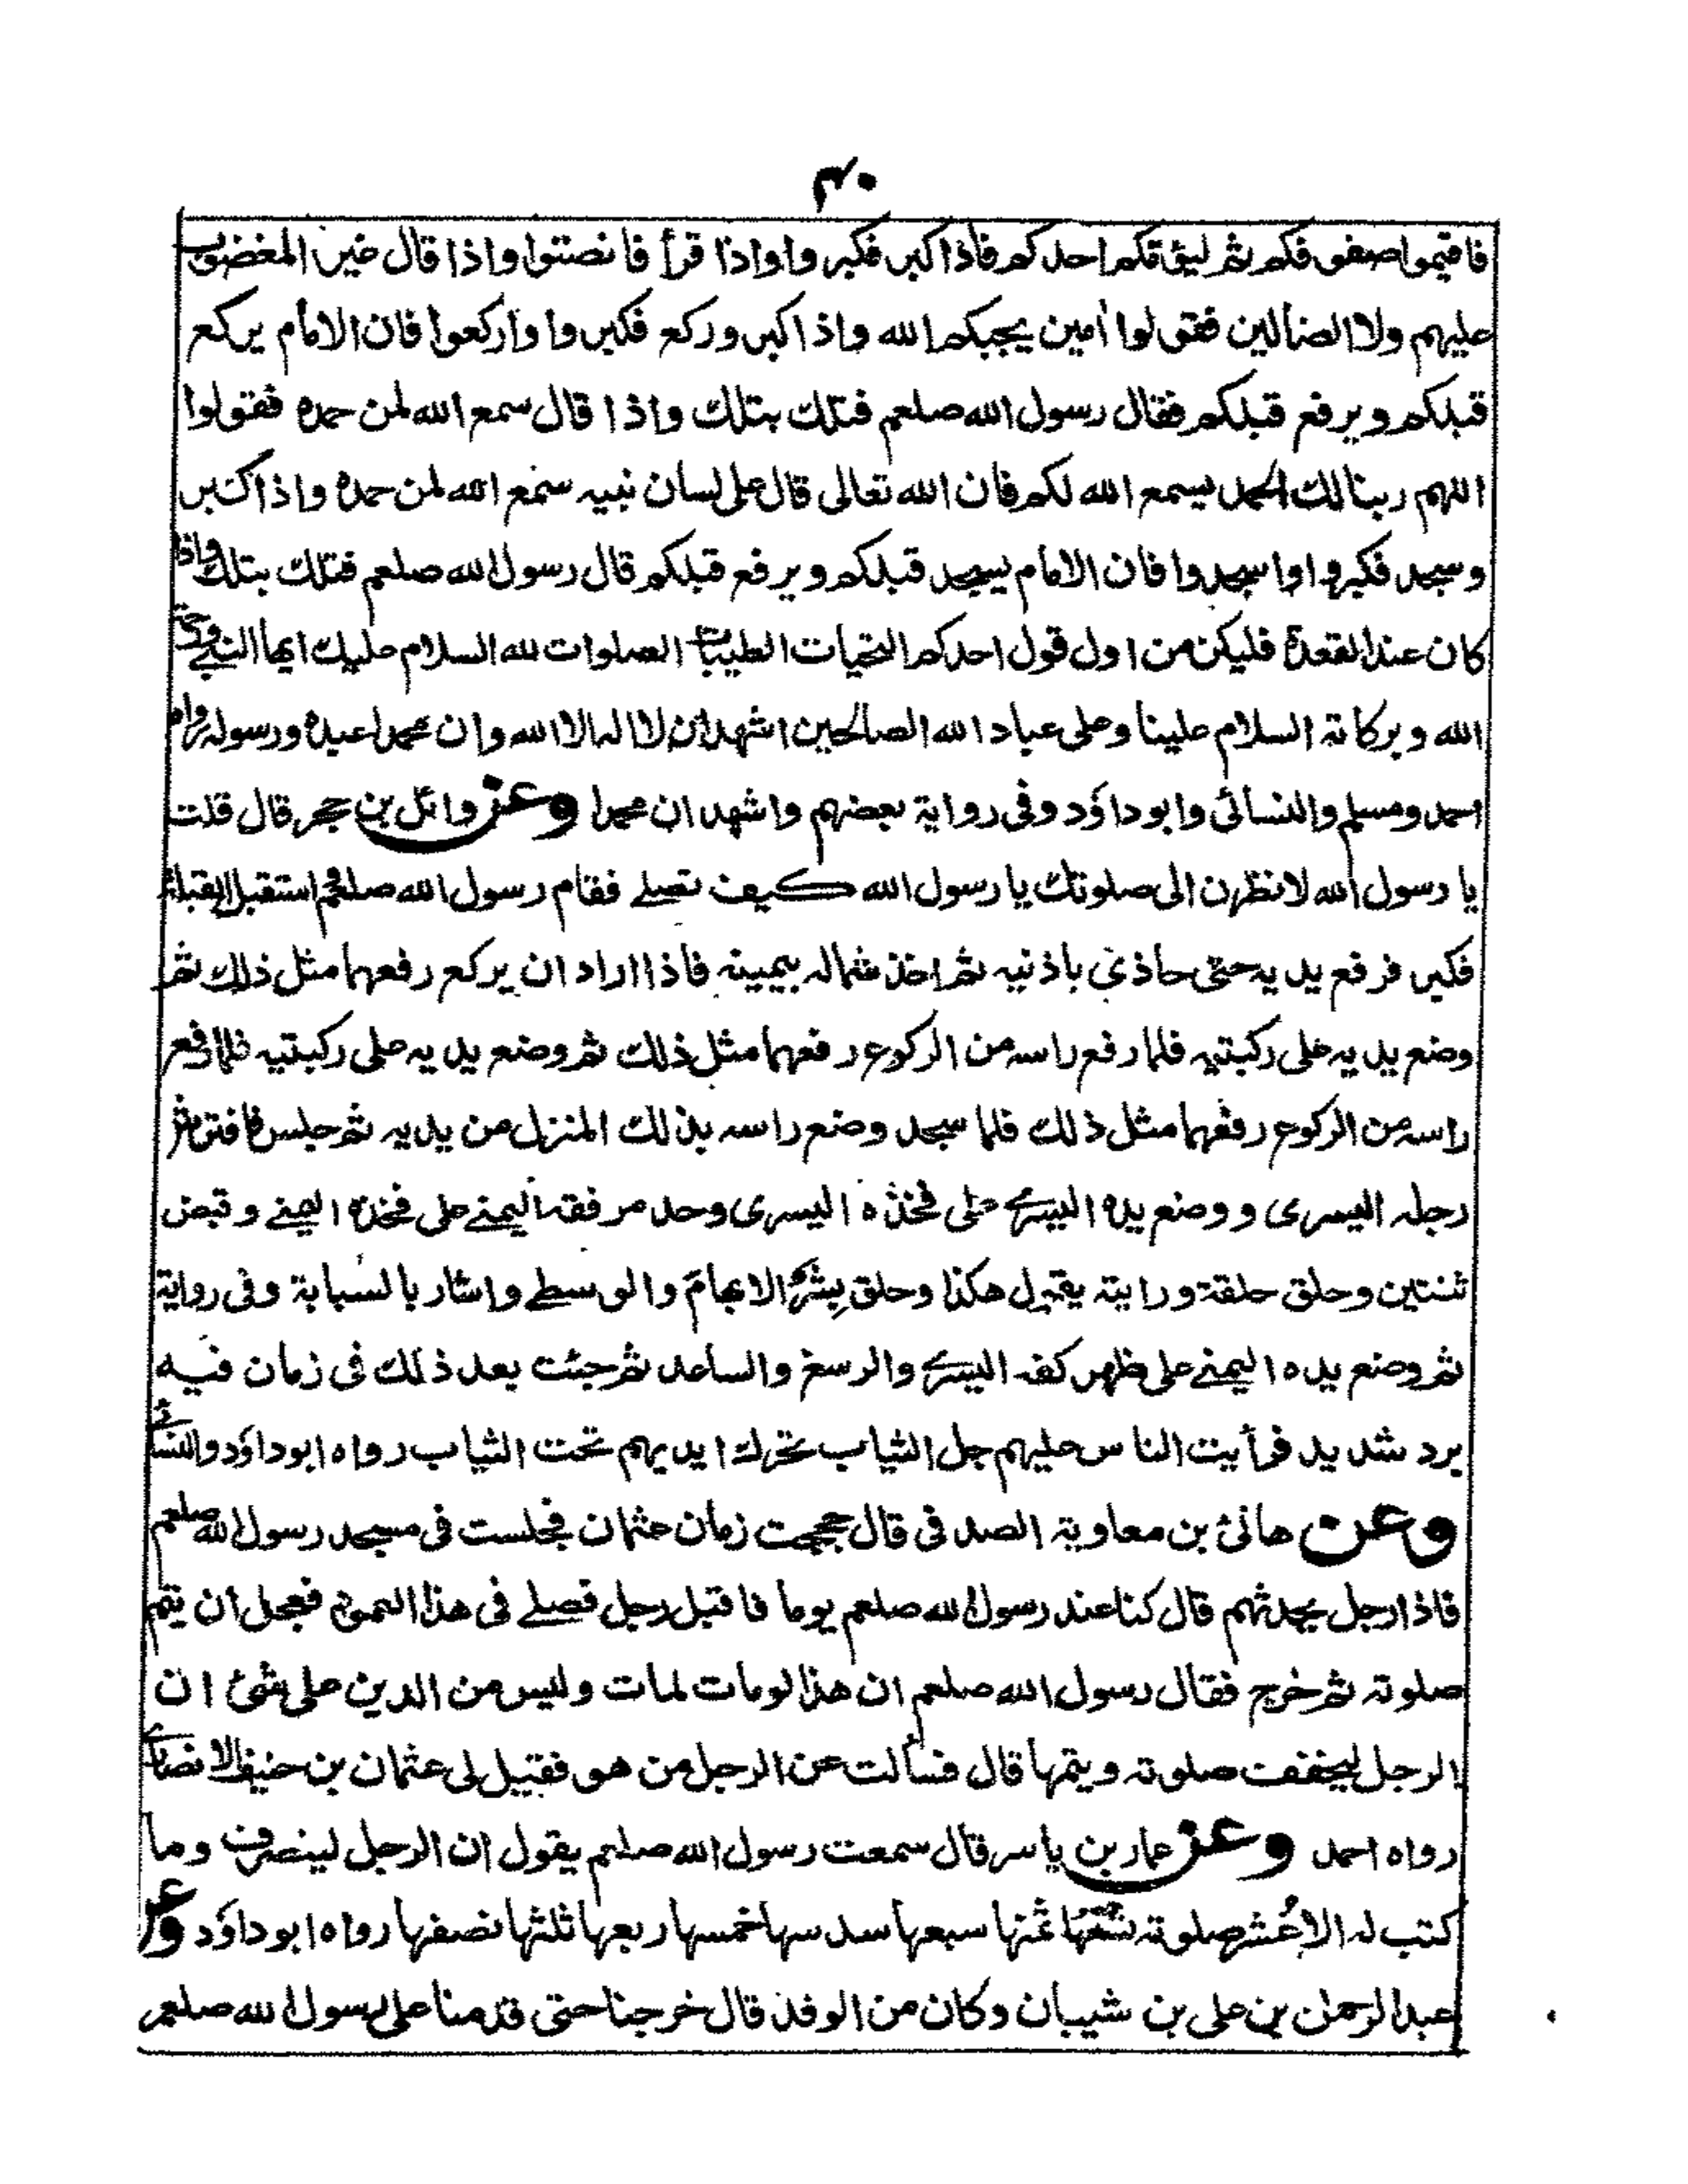 ۴۰
فاقيموا صفوفكم ثم ليؤمكم احدكم فاذا كبر فكبروا واذا قرأ فانصتوا واذا قال غير المغضوب
عليهم ولا الضالين فقولوا أمين يجبكم الله واذا كبر وركع فكبروا واركعوا فان الامام يركع
قبلكم ويرفع قبلكم فقال رسول الله صلعم فتلك بتلك واذا قال سمع الله لمن حمده فقولوا
اللهم ربنا لك الحمد يسمع الله لكم فان الله تعالى قال على لسان نبيه سمع الله لمن حمده واذا كبر
وسجد فكبروا واسجدوا فان الامام يسجد قبلكم ويرفع قبلكم قال رسول الله صلعم فتلك بتلك واذا
كان عند القعدة فليكن من اول قول احدكم التحيات الطيبات الصلوات لله السلام عليك ايها النبي ورحمة
الله وبركاته السلام علينا وعلى عباد الله الصالحين اشهد ان لا اله الا الله وان محمدا عبده ورسوله رواه
احمد ومسلم والنسائى وابوداؤد وفى رواية بعضهم واشهد ان محمدا وعن وائل بن حجر قال قلت
يا رسول الله لانظرن الى صلوتك يا رسول الله كيف تصلے فقام رسول الله صلعم استقبل القبلة
فكبر فرفع يديه حتى حاذى باذنيه ثم اخذ شماله بيمينه فاذا اراد ان يركع رفعهما مثل ذلك ثم
وضع يديه على ركبتيه فلما رفع راسه من الركوع رفعهما مثل ذلك ثم وضع يديه على ركبتيه فلما رفع
راسه من الركوع رفعهما مثل ذلك فلما سجد وضع راسه بذلك المنزل من يديه ثم جلس فافترش
رجله اليسرى ووضع يده اليسرے على فخذه اليسرى وحد مرفقه اليمنے على فخذه اليمنے وقبض
ثنتين وحلق حلقة ورايته يقول هكذا وحلق بشر الابهام والوسطے واشار بالسبابة وفى رواية
ثم وضع يده اليمنے على ظهر كفه اليسرے والرسغ والساعد ثم جئت بعد ذلك فى زمان فيه
برد شديد فرأيت الناس عليهم جل الثياب تحرك ايديهم تحت الثياب رواه ابوداؤد والنسائے
وعن هانئ بن معاوية الصدفى قال حججت زمان عثمان فجلست فى مسجد رسول الله صلعم
فاذا رجل يحدثهم قال كنا عند رسول الله صلعم يوما فاقبل رجل فصلے فى هذا العمود فعجل أن يتم
صلوته ثم خرج فقال رسول الله صلعم ان هذا لومات لمات وليس من الدين على شئ ان
الرجل ليخفف صلوته ويتمها قال فسألت عن الرجل من هو فقيل لى عثمان بن حنيف الانصارے
رواه احمد وعن عمار بن ياسر قال سمعت رسول الله صلعم يقول ان الرجل لينصرف وما
كتب له الا عُشر صلوته تسعها ثمنها سبعها سدسها خمسها ربعها ثلثها نصفها رواه ابوداؤد وعن
عبد الرحمن بن على بن شيبان وكان من الوفد قال خرجنا حتى قدمنا على رسول الله صلعم